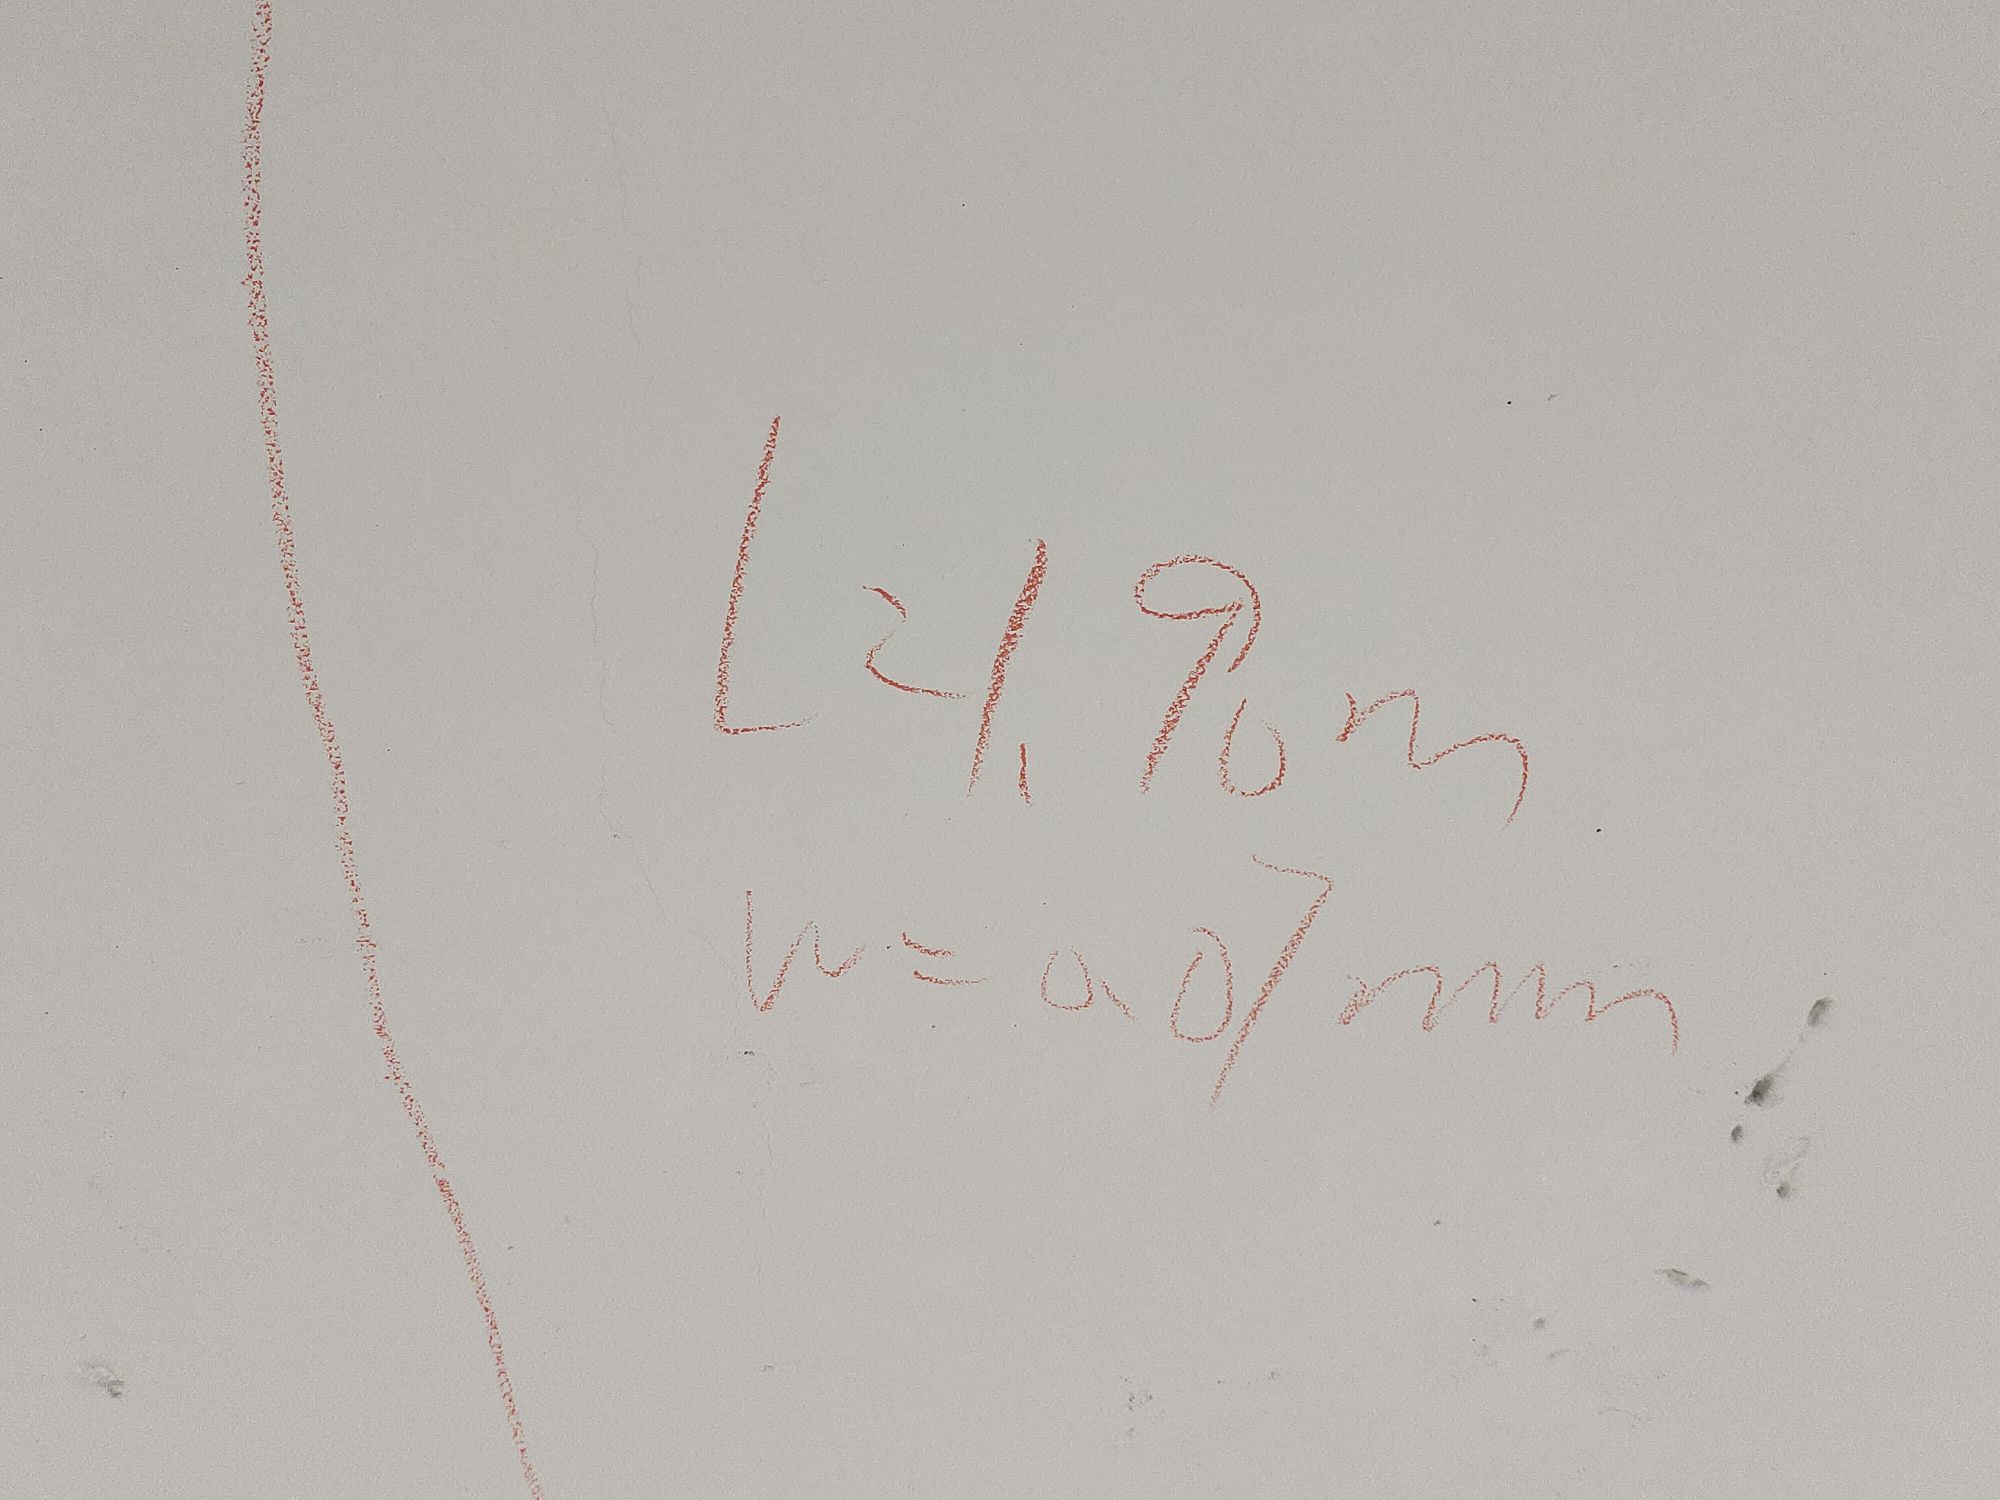 L=1.90m
W=0.07mm